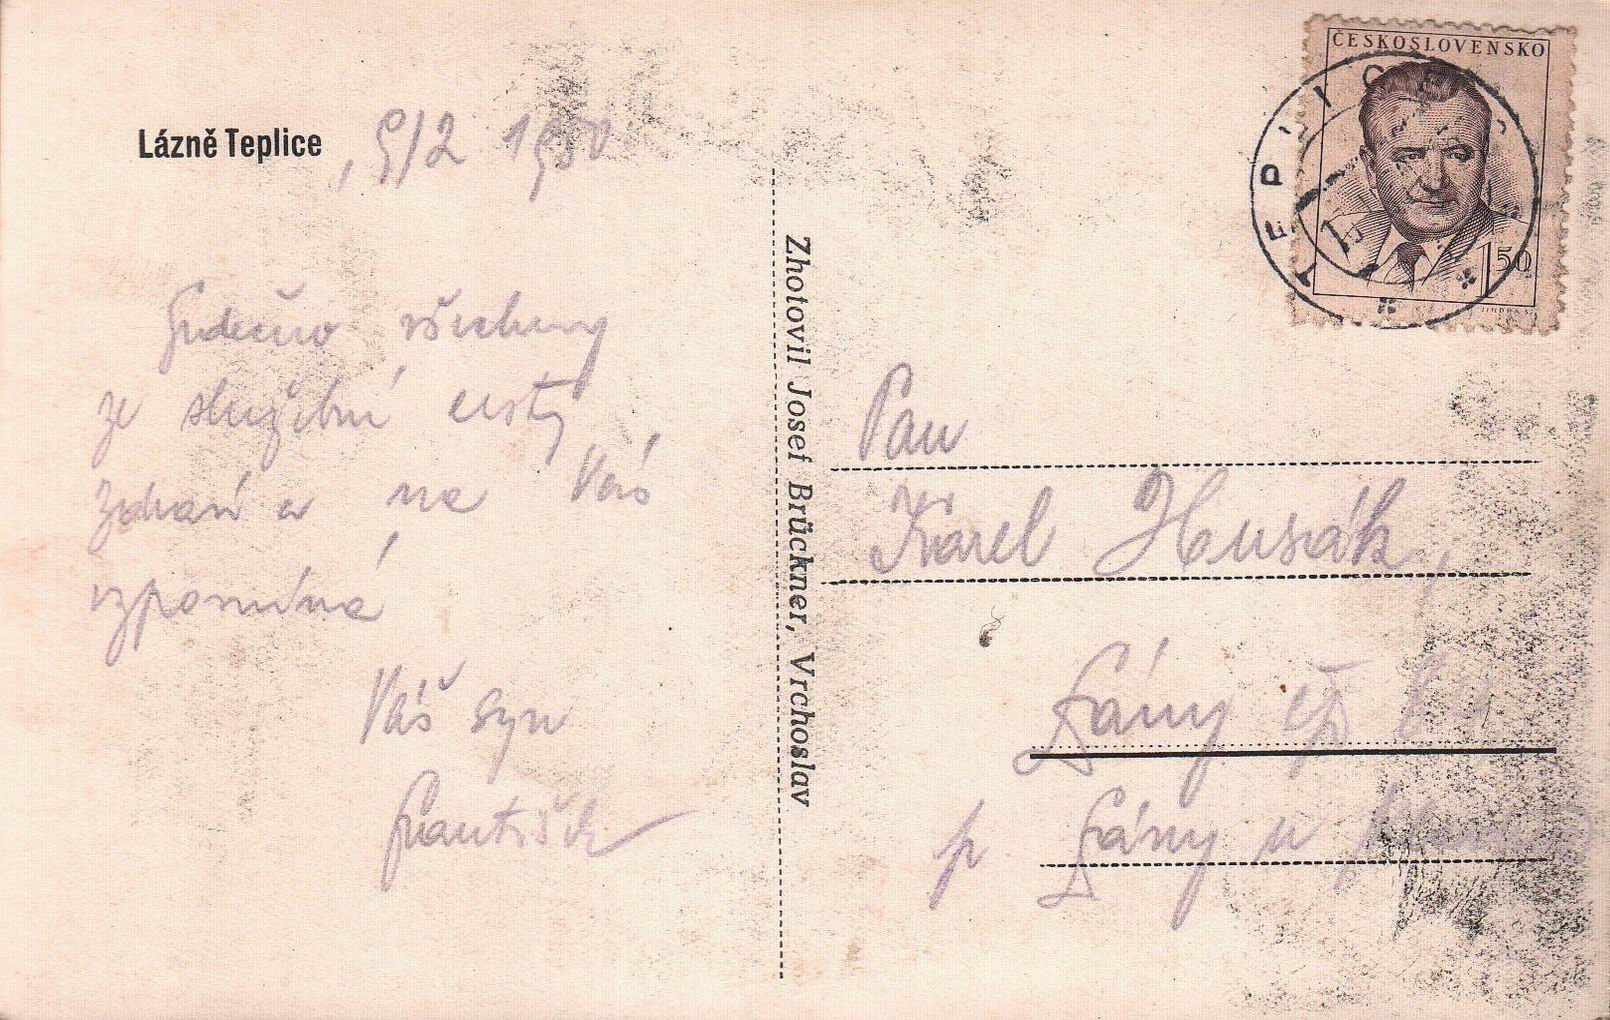 Lázně Teplice, 9/2 1950
Srdečno všichny
ze služební cesty
zdraví a na Vás
vzpomíná
Váš syn
František
Zhotovil Josef Brückner, Vrchoslav
ČESKOSLOVENSKO
1 50
TEPLIC
Pan
Karel Husák,
Lány čp
p Lány u